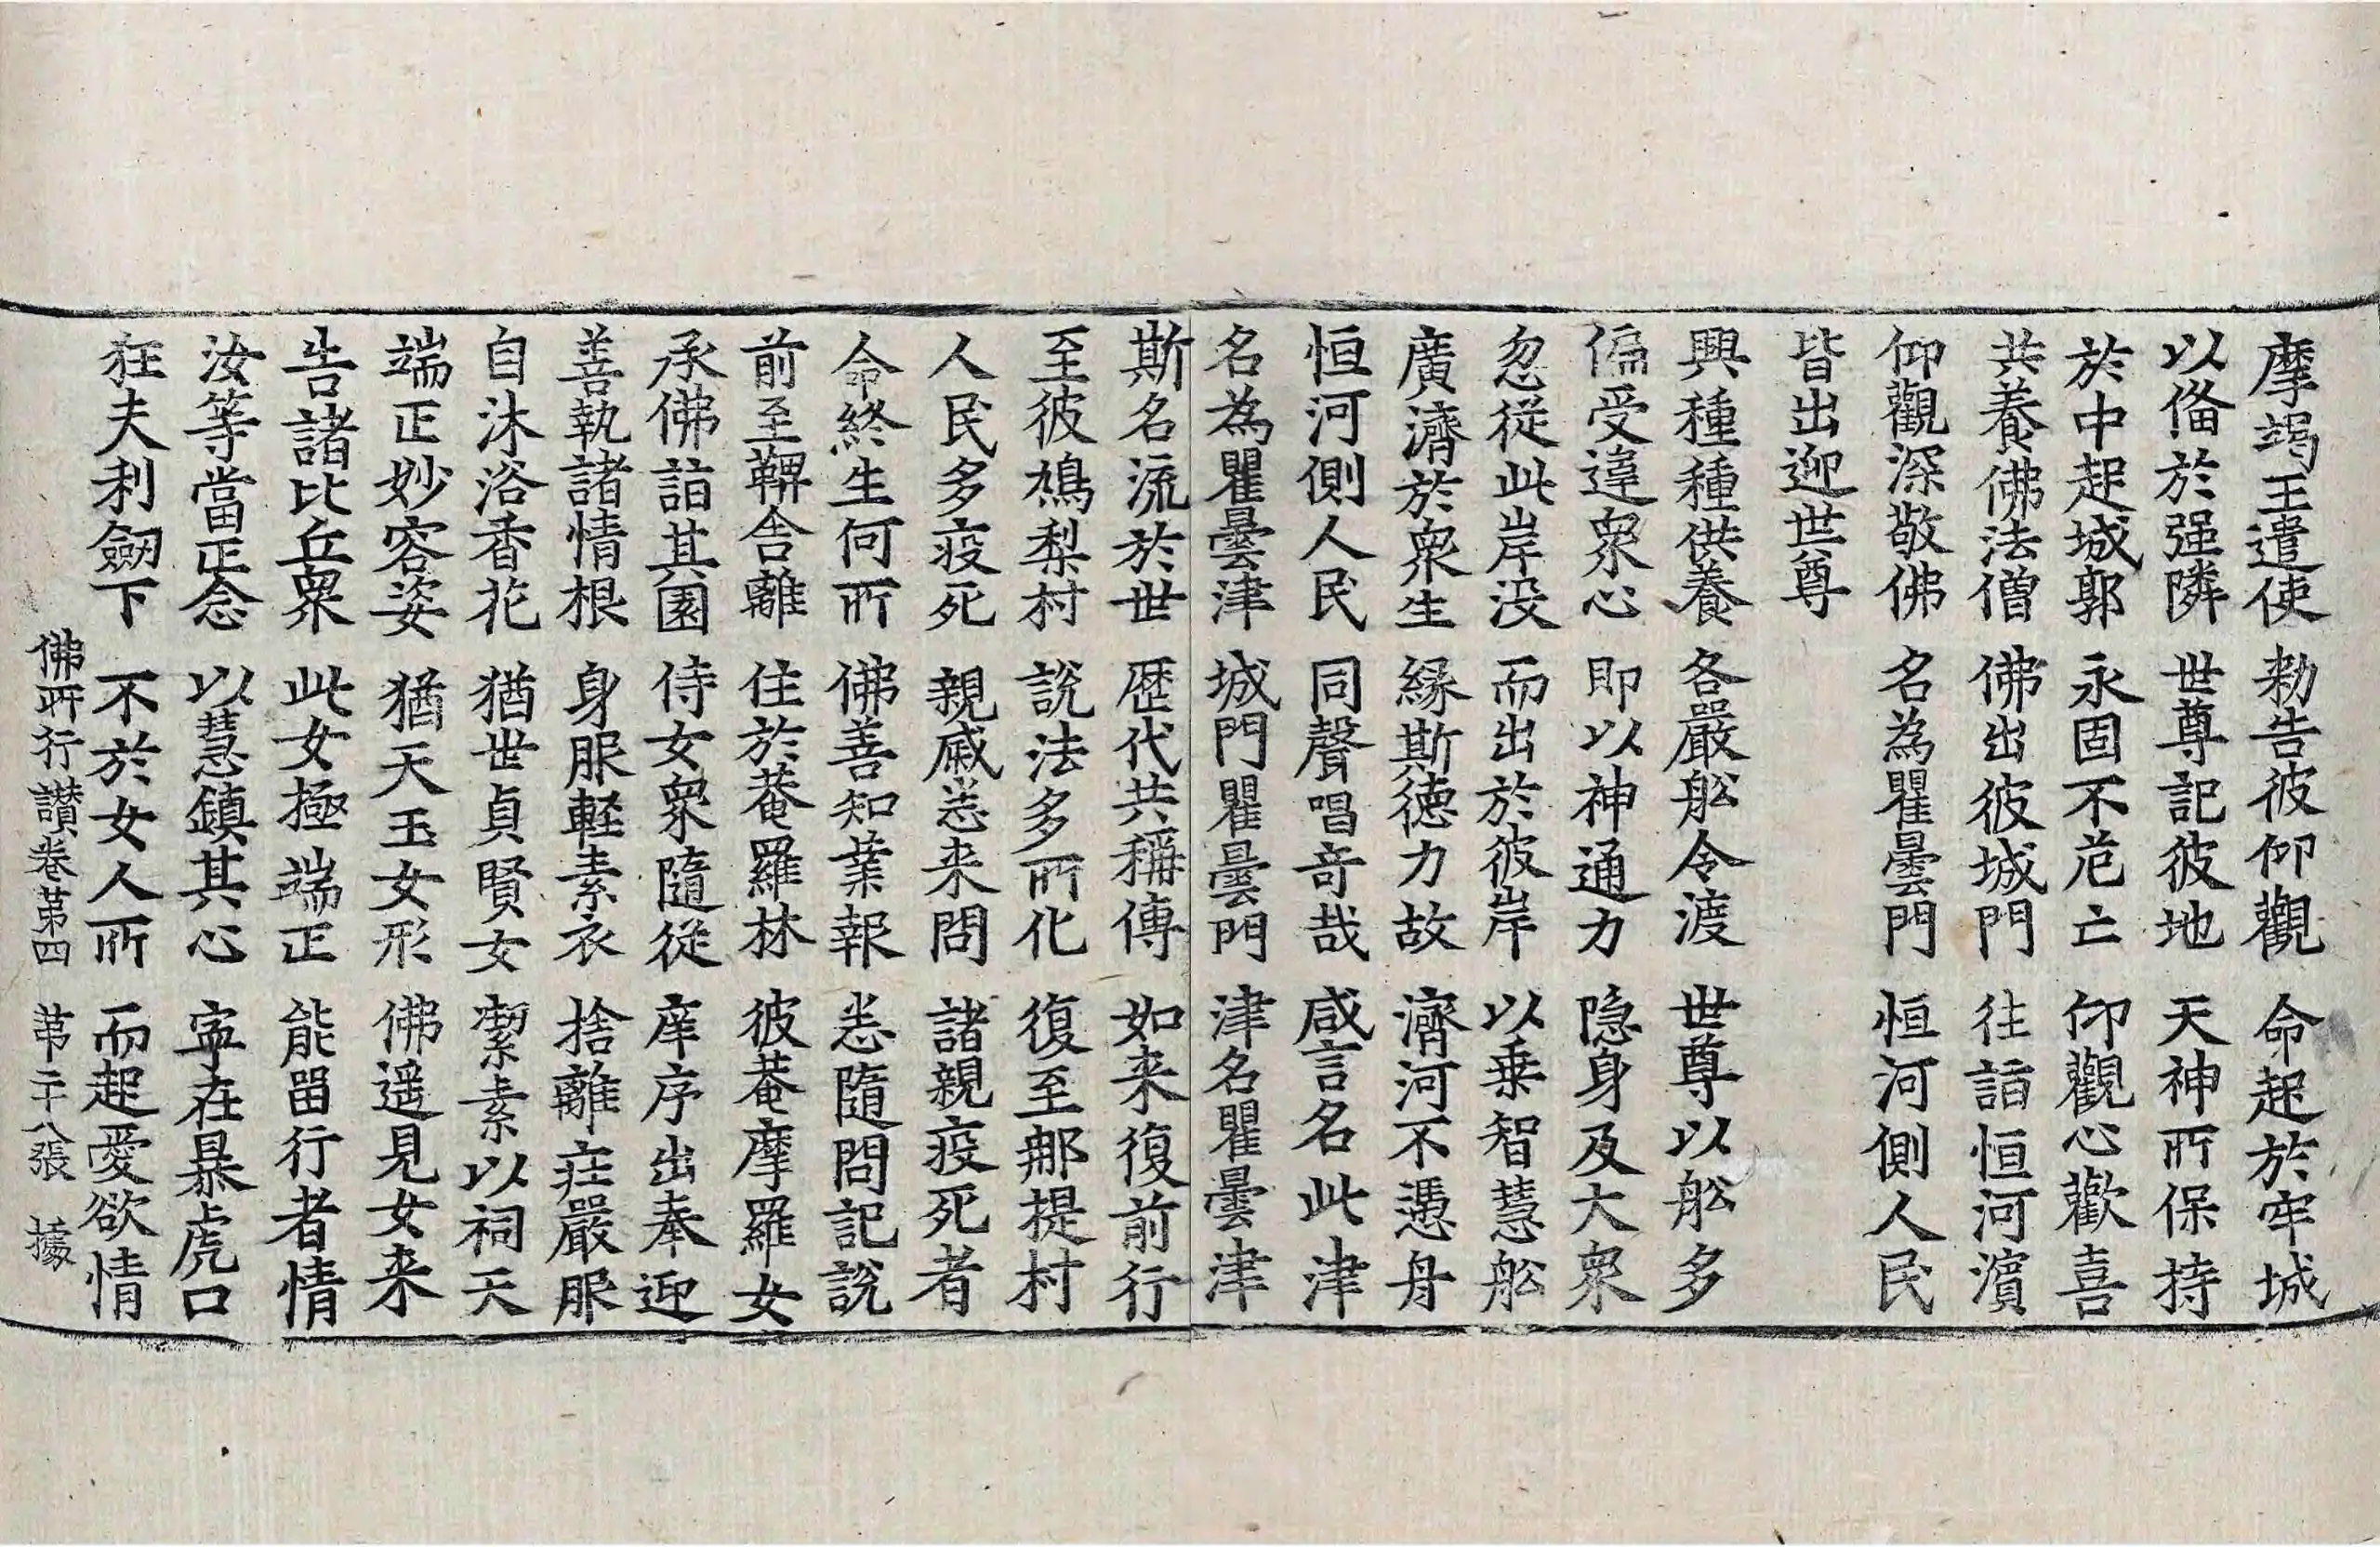 摩竭王遣使　勑告彼仰觀　命起於牢城
以俻於强隣　世尊記彼地　天神所保持
於中起城郭　永固不危亡　仰觀心歡喜
共養佛法僧　佛出彼城門　往詣恒河濱
仰觀深敬佛　名為瞿曇門　恒河側人民
皆出迎世尊
興種種供養　各嚴舩令渡　世尊以舩多
偏受違衆心　即以神通力　隐身及大衆
忽從此岸没　而出於彼岸　以乗智慧舩
廣濟於衆生　縁斯德力故　濟河不憑舟
恒河側人民　同聲唱竒哉　咸言名此津
名為瞿曇津　城門瞿曇門　津名瞿曇津
斯名流於世　歴代共稱傳　如来復前行
至彼鳩梨村　説法多所化　復至那提村
人民多疫死　親戚悉来問　諸親疫死者
命終生何所　佛善知業報　悉隨問記説
前至鞞舍離　住於菴羅林　彼菴摩羅女
承佛詣其園　侍女衆隨從　庠序出奉迎
善執諸情根　身服軽素衣　捨離莊嚴服
自沐浴香花　猶世貞賢女　潔素以祠天
端正妙容姿　猶天玉女形　佛遥見女来
告諸比丘衆　此女極端正　能畱行者情
汝等當正念　以慧鎮其心　寧在暴虎口
狂夫利劒下　不於女人所　而起愛欲情
佛所行讃卷第四　第二十八張　據